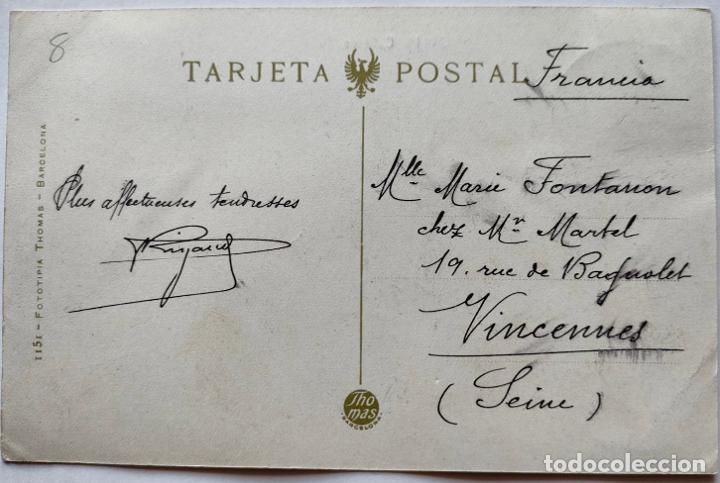 8
TARJETA POSTAL
Francia
1151 - FOTOTIPIA THOMAS - BARCELONA
Plus affectueuses tendresses
Mlle Marie Fontanon
chez Mr Martel
19. rue de Bagnolet
Vincennes
(Seine)
Thomas
BARCELONA
todocoleccion.net